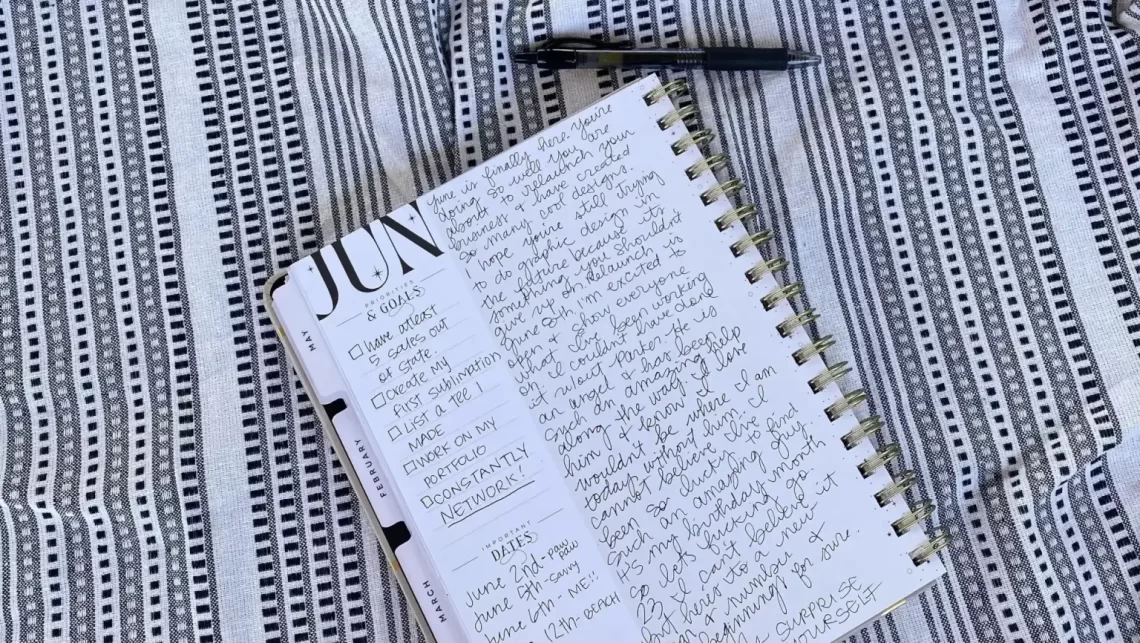 JUN
PRIORITIES
& GOALS
have atleast
5 sales out
of state.
create my
first sublimation
LIST A TEE I
MADE
WORK ON MY
PORTFOLIO
CONSTANTLY
NETWORK!
IMPORTANT
DATES
June 2nd - paw paw
June 5th - savvy
June 6th - ME!!
12th - BEACH
MAY
FEBRUARY
MARCH
June is finally here. You're
doing so well you are
about to relaunch your
business & have created
so many cool designs.
I hope you're still trying
to do graphic design in
the future because it's
something you shouldn't
give up on. Relaunch is
June 5th, I'm excited to
open & show everyone
what I've been working
on. I couldn't have done
it w/out Parter. He is
an angel & has been
such an amazing help
along the way. I love
him & know I
wouldn't be where I am
today without him. I
cannot believe I've
been so lucky to find
such an amazing guy.
It's my birthday month
so lets fucking go.
23 & I can't believe it
but here's to a new
number &
beginning for sure.
SUPRISE
YOURSELF